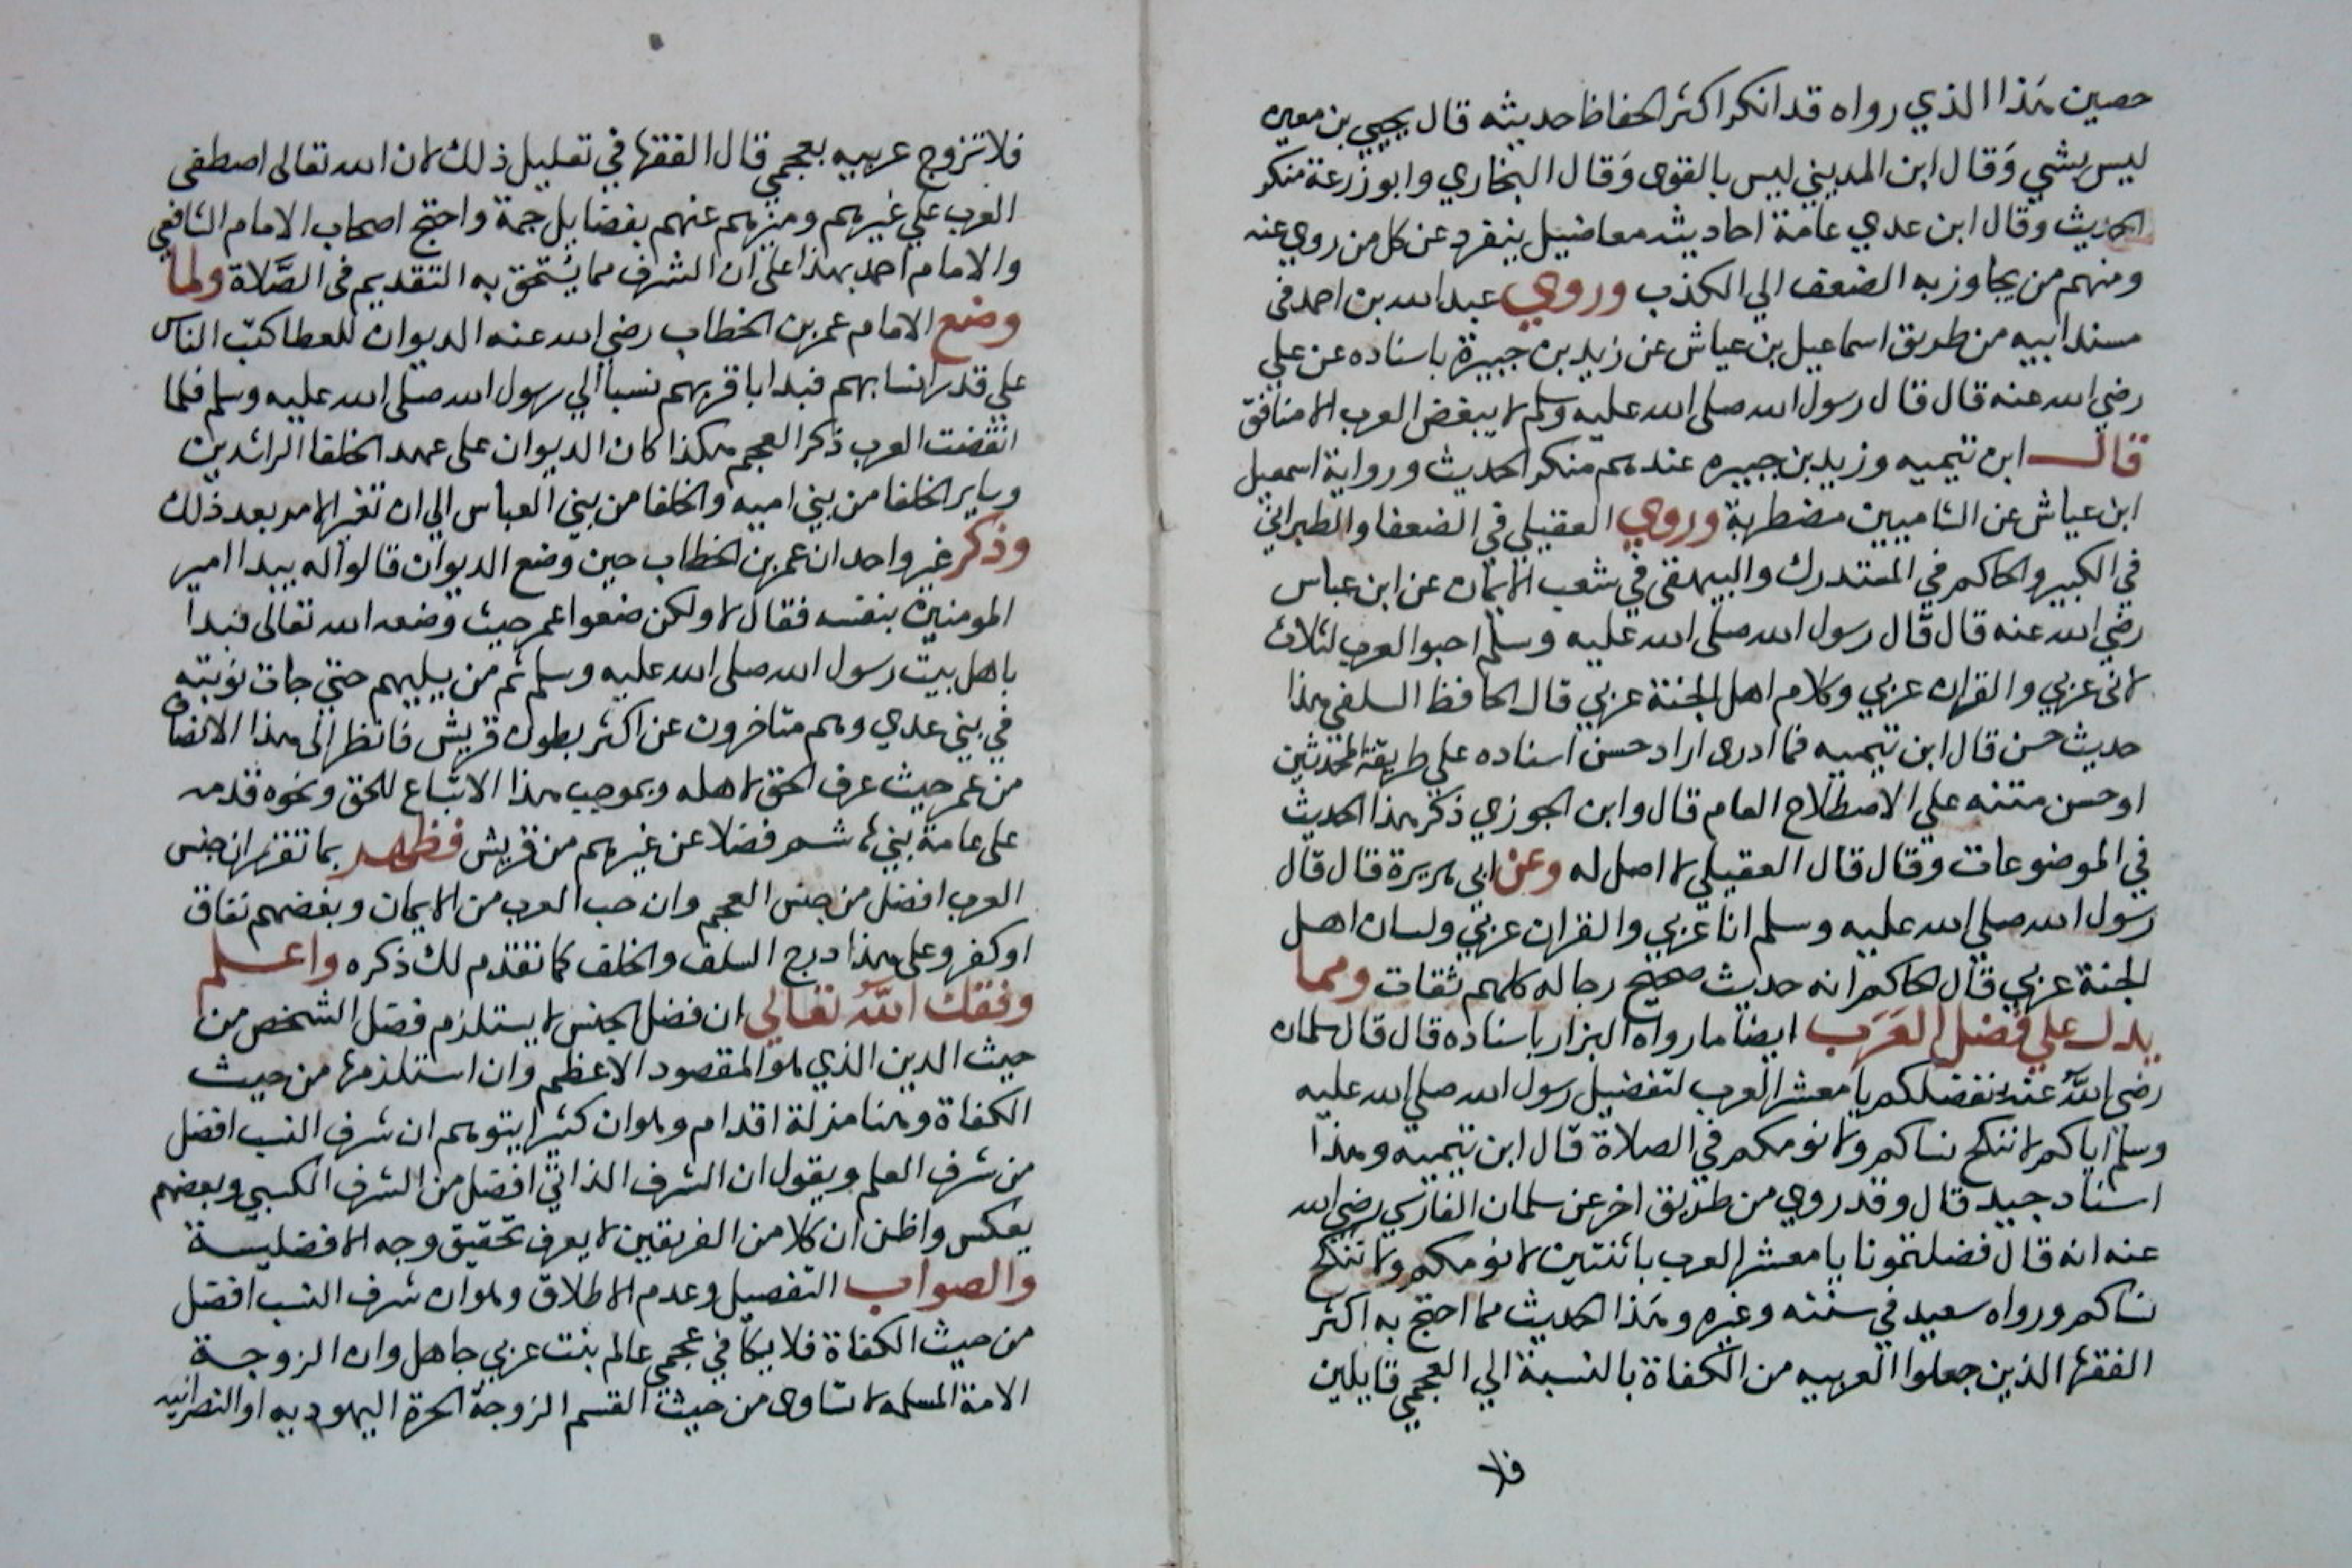 حصين هذا الذي رواه قد انكر اكثر الحفاظ حديثه قال يحيي بن معين
ليس بشي وقال ابن المديني ليس بالقوى وقال البخاري وابو زرعة منكر
الحديث وقال ابن عدي عامة احاديثه معاضيل ينفرد عن كل من روي عنه
ومنهم من يجاوز به الضعف الي الكذب وروي عبد الله بن احمد في
مسند ابيه من طريق اسماعيل بن عياش عن زيد بن جبيرة باسناده عن علي
رضي الله عنه قال قال رسول الله صلى الله عليه وسلم لا يبغض العرب الا منافق
قال ابن تيميه وزيد بن جبيره عندهم منكر الحديث ورواية اسمعيل
ابن عياش عن الشاميين مضطربة وروي العقيلي في الضعفا والطبراني
في الكبير والحاكم في المستدرك والبيهقي في شعب الايمان عن ابن عباس
رضي الله عنه قال قال رسول الله صلى الله عليه وسلم احبوا العرب لثلاث
لانى عزبي والقران عربي وكلام اهل الجنة عربي قال الحافظ السلفي هذا
حديث حسن قال ابن تيميه فما ادرى اراد حسن اسناده علي طريقة المحدثين
او حسن متنه علي الاصطلاح العام قال وابن الجوزي ذكر هذا الحديث
في الموضوعات وقال قال العقيلي لا اصل له وعن ابي هريرة قال قال
رسول الله صلي الله عليه وسلم انا عربي والقران عربي ولسان اهل
الجنة عربي قال الحاكم انه حديث صحيح رجاله كلهم ثقات ومما
يدل علي فضل العرب ايضا ما رواه البزار باسناده قال قال سلمان
رضي الله عنه نفضلكم يا معشر العرب لتفضيل رسول الله صلي الله عليه
وسلم اياكم لا ننكح نساكم ولا نومكم في الصلاة قال ابن تيميه وهذا
اسناد جيد قال وقد روي من طريق اخر عن سلمان الفارسي رضي الله
عنه انه قال فضلتمونا يا معشر العرب باثنتين لا نومكم ولا ننكح
نساكم ورواه سعيد في سننه وغيره وهذا الحديث مما احتج به اكثر
الفقها الذين جعلوا العربيه من الكفاة بالنسبة الي العجمي قايلين
فلا
فلا تزوج عربيه بعجمي قال الفقها في تعليل ذلك لان الله تعالى اصطفى
العرب علي غيرهم وميزهم عنهم بفضايل جمة واحتج اصحاب الامام الشافعي
والامام احمد بهذا على ان الشرف مما يستحق به التقديم في الصلاة ولما
وضع الامام عمر بن الخطاب رضي الله عنه الديوان للعطا كتب الناس
علي قدر انسابهم فبدا باقربهم نسبا الي رسول الله صلى الله عليه وسلم فلما
انقضت العرب ذكر العجم هكذا كان الديوان على عهد الخلفا الراشدين
وساير الخلفا من بني اميه والخلفا من بني العباس الي ان تغير الامر بعد ذلك
وذكر غير واحد ان عمر بن الخطاب حين وضع الديوان قالوا له يبدا امير
المومنين بنفسه فقال لا ولكن ضعوا عمر حيث وضعه الله تعالى فبدا
باهل بيت رسول الله صلى الله عليه وسلم ثم من يليهم حتي جات نوبته
في بني عدي وهم متاخرون عن اكثر بطون قريش فانظر الى هذا الانصاف
من عمر حيث عرف الحق لاهله وبموجب هذا الاتباع للحق ونحوه قدمه
على عامة بني هاشم فضلا عن غيرهم من قريش فظهر بما تقرر ان جنس
العرب افضل من جنس العجم وان حب العرب من الايمان وبغضهم نفاق
او كفر وعلى هذا درج السلف والخلف كما تقدم لك ذكره واعلم
وفقك الله تعالي ان فضل الجنس لا يستلزم فضل الشخص من
حيث الدين الذي هو المقصود الاعظم وان استلزمه من حيث
الكفاة وهنا مزلة اقدام وهو ان كثيرا يتوهم ان شرف النسب افضل
من شرف العلم ويقول ان الشرف الذاتي افضل من الشرف الكسبي وبعضهم
يعكس واظن ان كلا من الفريقين لا يعرف تحقيق وجه الافضلية
والصواب التفصيل وعدم الاطلاق وهو ان شرف النسب افضل
من حيث الكفاة فلا يكافي عجمي عالم بنت عربي جاهل وان الزوجة
الامة المسلمه لا تساوى من حيث القسم الزوجة الحرة اليهوديه او النصرانيه